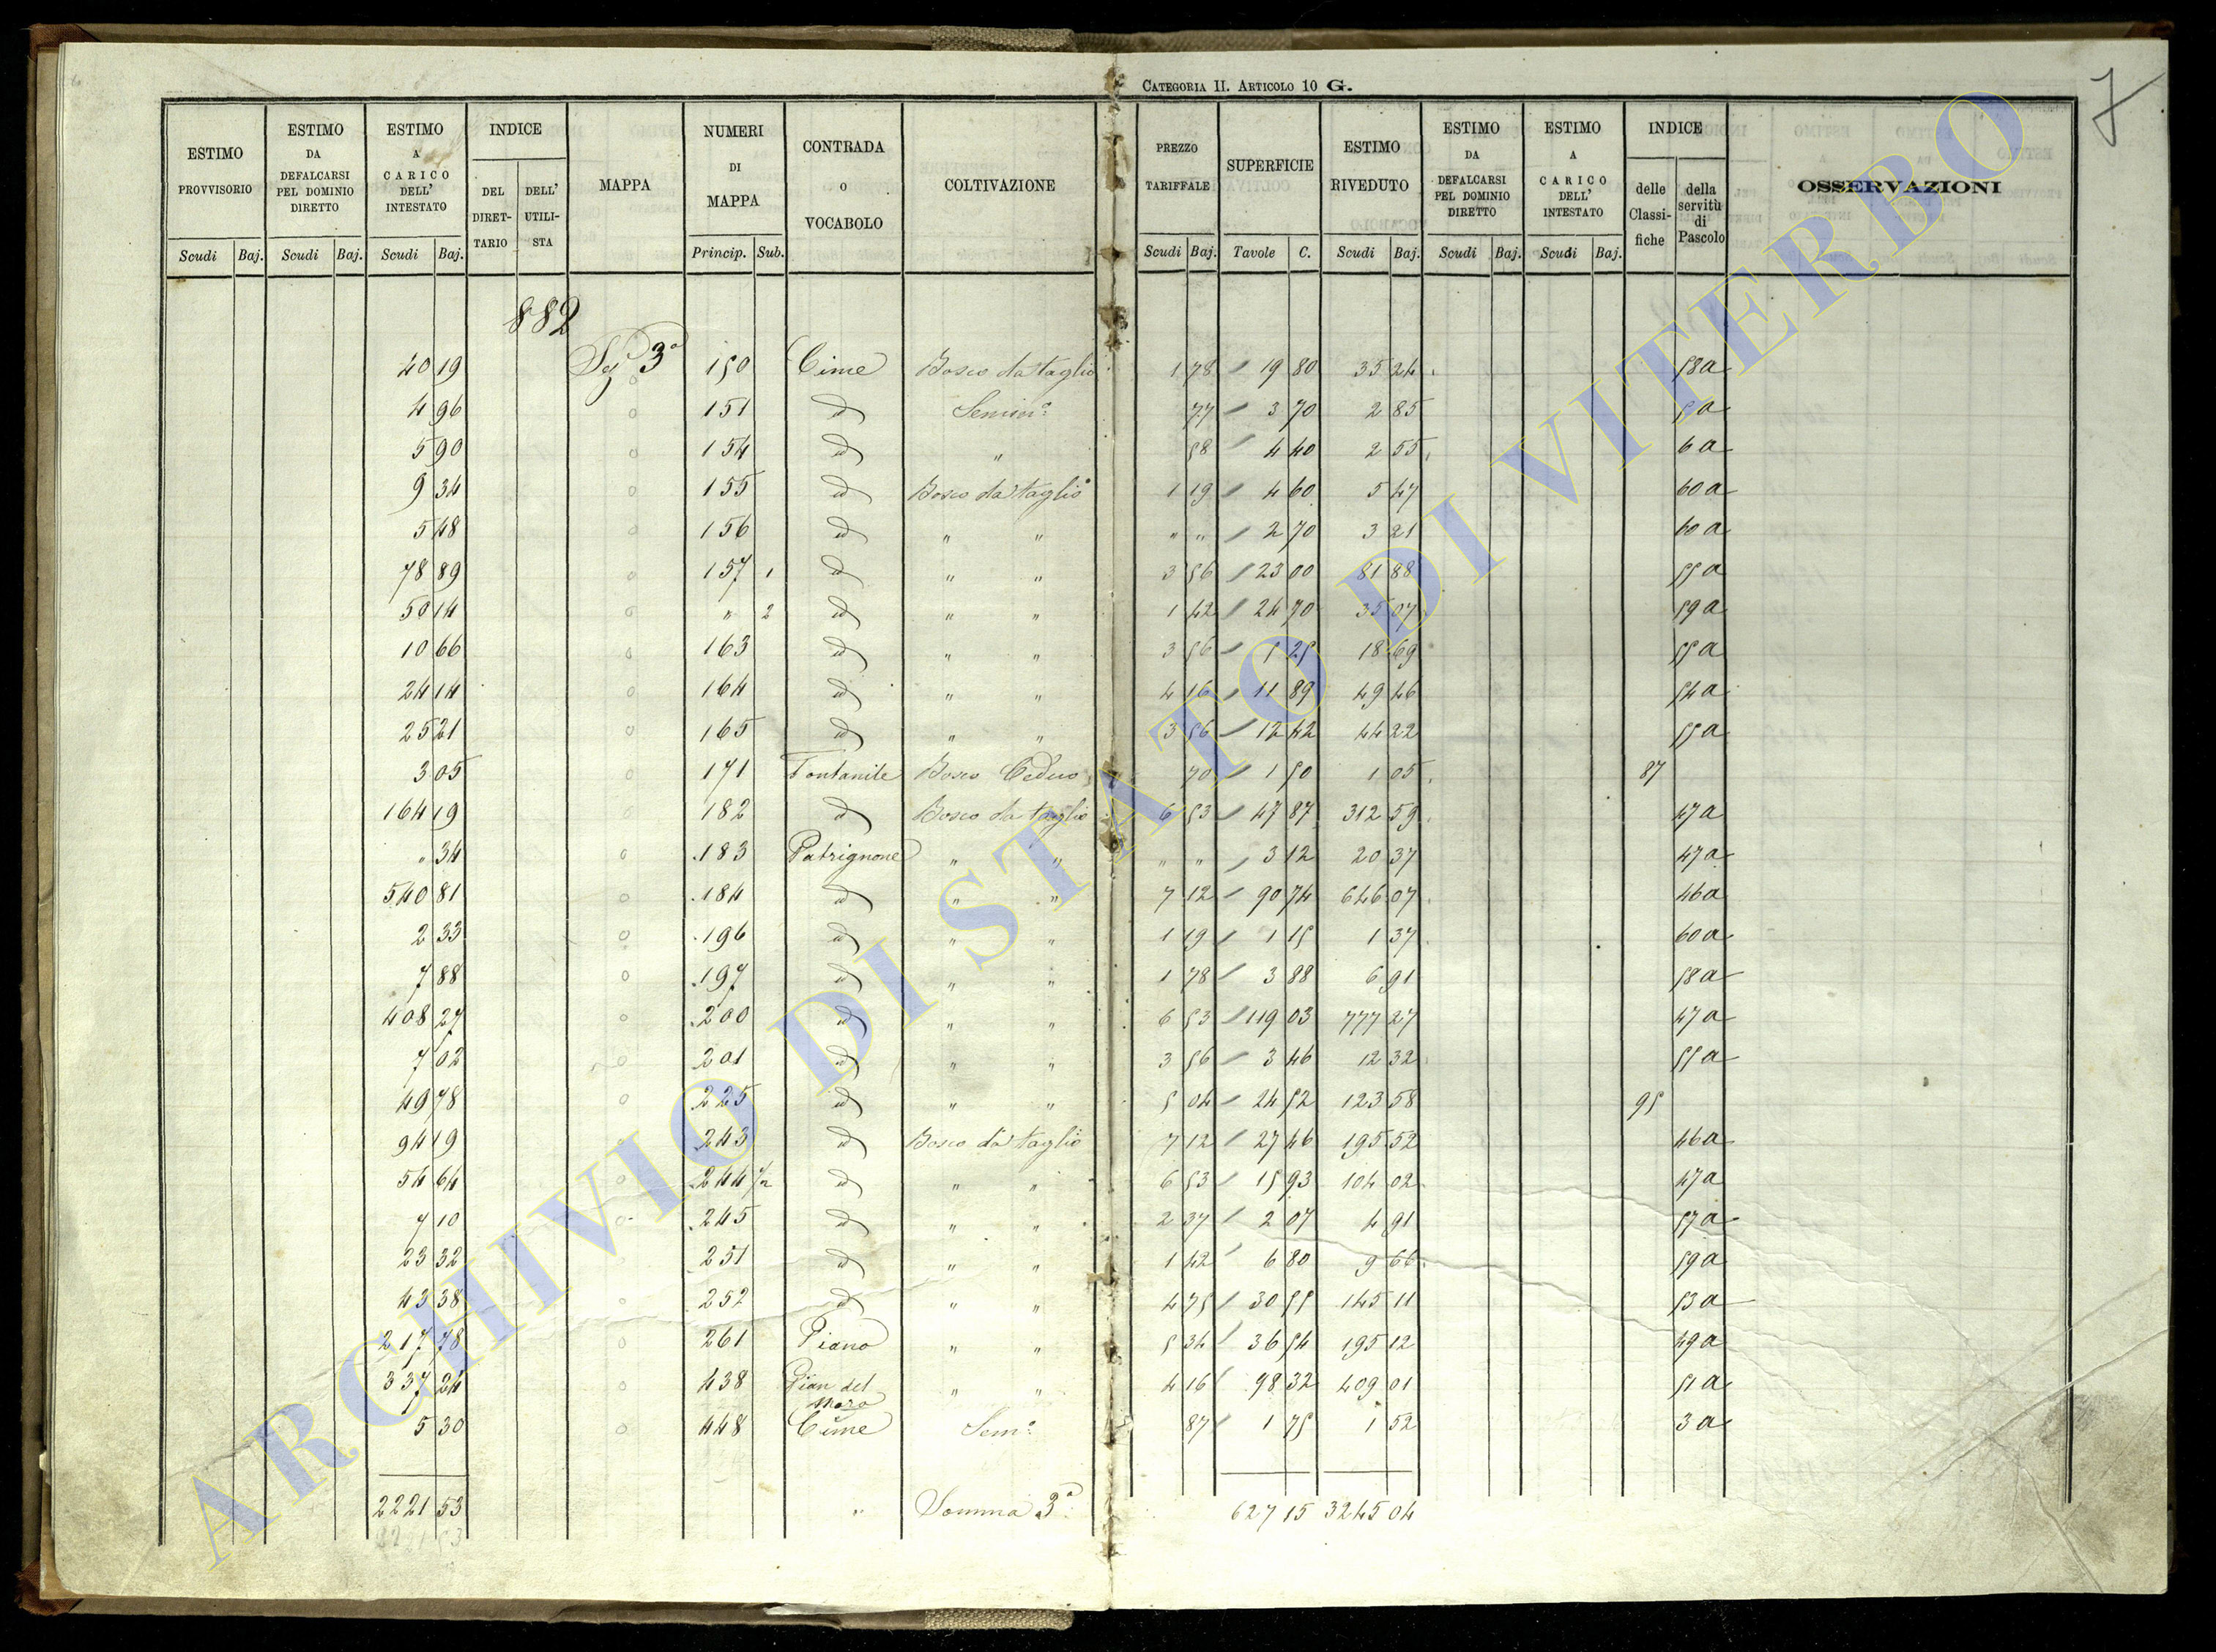 CATEGORIA II. ARTICOLO 10 G.
7
ESTIMO PROVVISORIO
ESTIMO DA DEFALCARSI PEL DOMINIO DIRETTO
ESTIMO A CARICO DELL' INTESTATO
INDICE
DEL DIRET-TARIO
DELL' UTILI-STA
MAPPA
NUMERI DI MAPPA
CONTRADA O VOCABOLO
COLTIVAZIONE
PREZZO TARIFFALE
SUPERFICIE
ESTIMO RIVEDUTO
ESTIMO DA DEFALCARSI PEL DOMINIO DIRETTO
ESTIMO A CARICO DELL' INTESTATO
INDICE
delle Classi-fiche
della servitù di Pascolo
OSSERVAZIONI
Scudi Baj. Scudi Baj. Scudi Baj. Princip. Sub. Scudi Baj. Tavole C. Scudi Baj. Scudi Baj. Scudi Baj.
882
40 19 Seg 3a 150 Cime Bosco da taglio 1 78 19 80 35 24 58a
4 96 151 id Semino: 77 3 70 2 85 5a
5 90 154 id " 58 4 40 2 55 6a
9 34 155 id Bosco da taglio 1 19 4 60 5 47 60a
5 48 156 id " " " " 2 70 3 21 60a
78 89 157 1 id " " 3 56 23 00 81 88 55a
50 14 " 2 id " " 1 42 24 70 35 07 59a
10 66 163 id " " 3 56 5 25 18 69 55a
24 14 164 id " " 4 16 11 89 49 46 54a
25 21 165 id " " 3 56 12 42 44 22 55a
3 05 171 Fontanile Bosco Ceduo 70 1 50 1 05 87
164 19 182 id Bosco da taglio 6 53 47 87 312 59 47a
" 34 183 Patrignone " " " " 3 12 20 37 47a
540 81 184 id " " 7 12 90 74 646 07 46a
2 33 196 id " " 1 19 1 15 1 37 60a
7 88 197 id " " 1 78 3 88 6 91 58a
408 27 200 id " " 6 53 119 03 777 27 47a
7 02 201 id " " 3 56 3 46 12 32 55a
49 78 225 id " " 5 04 24 52 123 58 95
94 19 243 id Bosco da taglio 7 12 27 46 195 52 46a
54 64 244 1/2 id " " 6 53 15 93 104 02 47a
7 10 245 id " " 2 37 2 07 4 91 57a
23 32 251 id " " 1 42 6 80 9 66 59a
43 38 252 id " " 4 75 30 55 145 11 53a
217 78 261 Piano " " 5 34 36 54 195 12 49a
337 24 438 Pian del Moro " " 4 16 98 32 409 01 51a
5 30 448 Cime Semo: 87 1 75 1 52 3a
2221 53 " Somma 3a: 627 15 3245 04
2221 53
ARCHIVIO DI STATO DI VITERBO